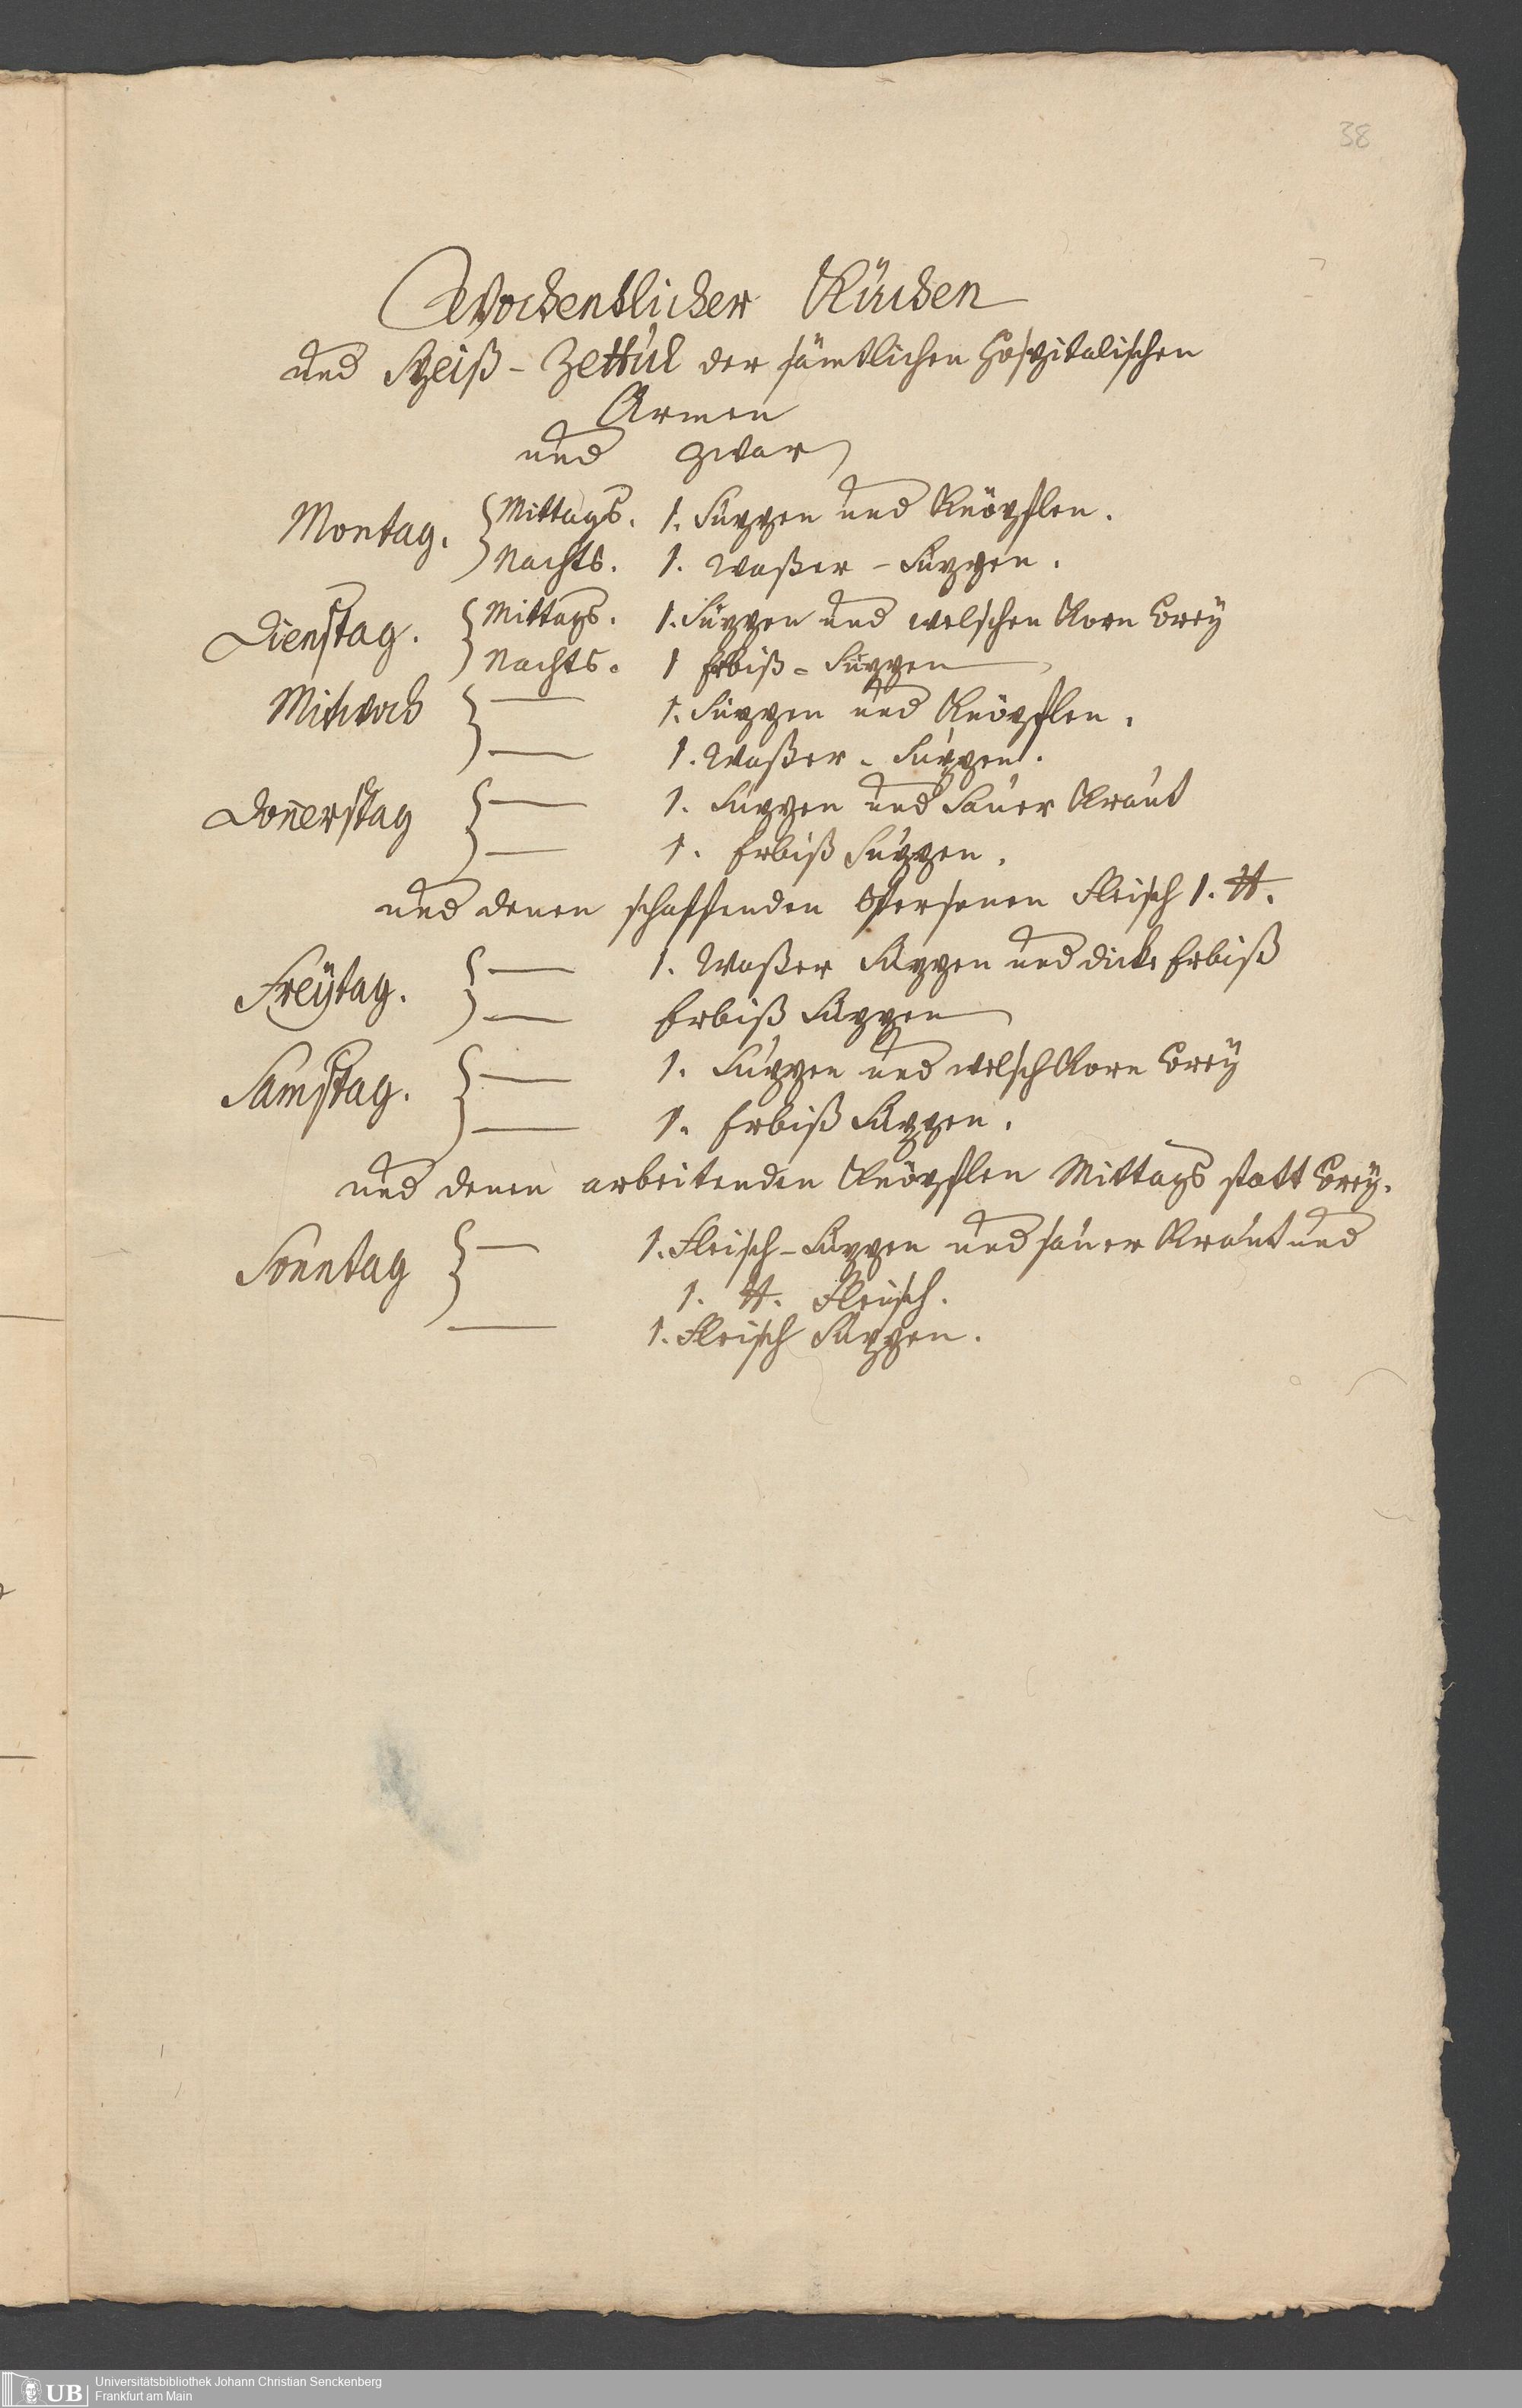 38
Wochentlicher Kuchen
und Speiß-Zettul der sämtlichen Hospitalischen
Armen
und zwar
Montag. Mittags. 1. Suppen und Knöpflen.
Nachts. 1. Waßer-Suppen.
Dienstag. Mittags. 1. Suppen und welschen Korn Brey
Nachts. 1 Erbiß-Suppen
Mitwoch — 1. Suppen und Knöpflen.
— 1. Waßer-Suppen.
Donnerstag — 1. Suppen und Sauer Kraut
— 1. Erbiß Suppen.
und denen schaffenden Personen Fleisch 1. ℔.
Freÿtag. — 1. Waßer Suppen und dicke Erbiß
— Erbiß Suppen
Samstag. — 1. Suppen und welsch Korn Breÿ
— 1. Erbiß Suppen.
und denen arbeitenden Knöpflen Mittags statt Breÿ.
Sonntag — 1. Fleisch-Suppen und sauer Kraut und
1. ℔. Fleisch.
— 1. Fleisch Suppen.
UB Universitätsbibliothek Johann Christian Senckenberg
Frankfurt am Main